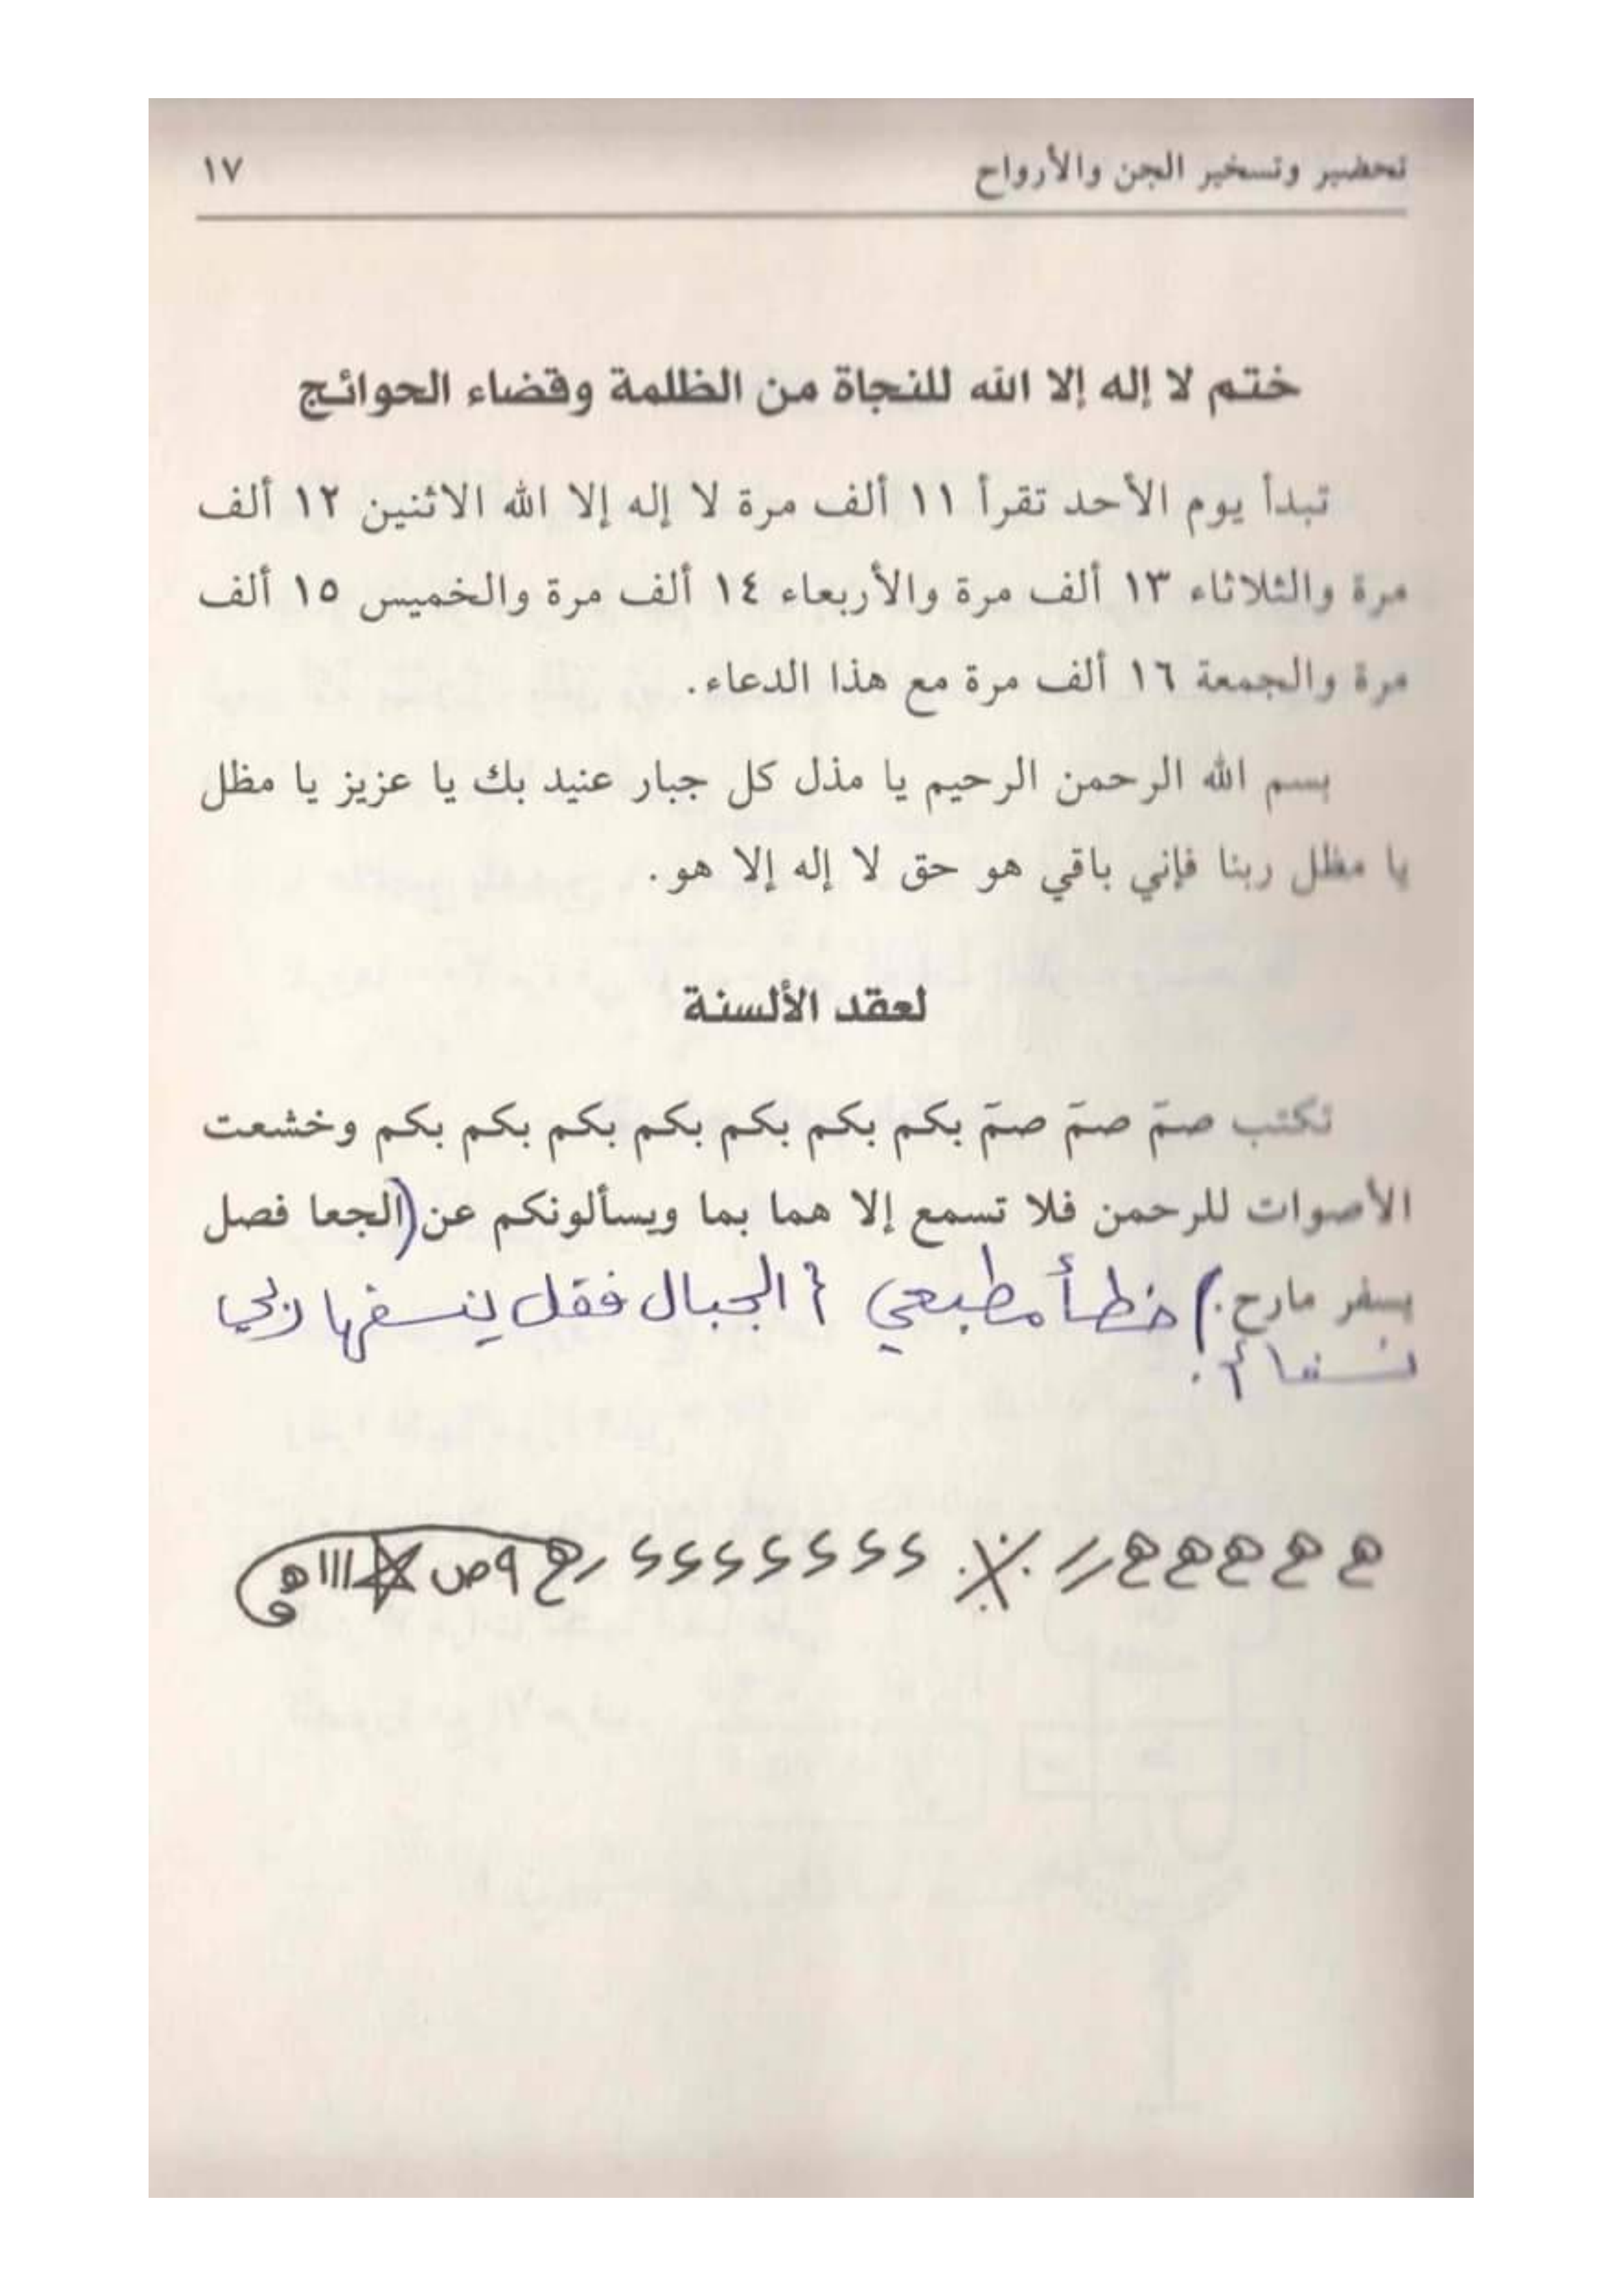 تحضير وتسخير الجن والأرواح ١٧
ختم لا إله إلا الله للنجاة من الظلمة وقضاء الحوائج
تبدأ يوم الأحد تقرأ ١١ ألف مرة لا إله إلا الله الاثنين ١٢ ألف
مرة والثلاثاء ١٣ ألف مرة والأربعاء ١٤ ألف مرة والخميس ١٥ ألف
مرة والجمعة ١٦ ألف مرة مع هذا الدعاء.
بسم الله الرحمن الرحيم يا مذل كل جبار عنيد بك يا عزيز يا مظل
يا مظل ربنا فإني باقي هو حق لا إله إلا هو.
لعقد الألسنة
تكتب صمّ صمّ صمّ بكم بكم بكم بكم بكم بكم بكم وخشعت
الأصوات للرحمن فلا تسمع إلا هما بما ويسألونكم عن (الجعا فصل
يسفر مارح.) خطأ مطبعي { الجبال فقل ينسفها ربي
نسفا }.